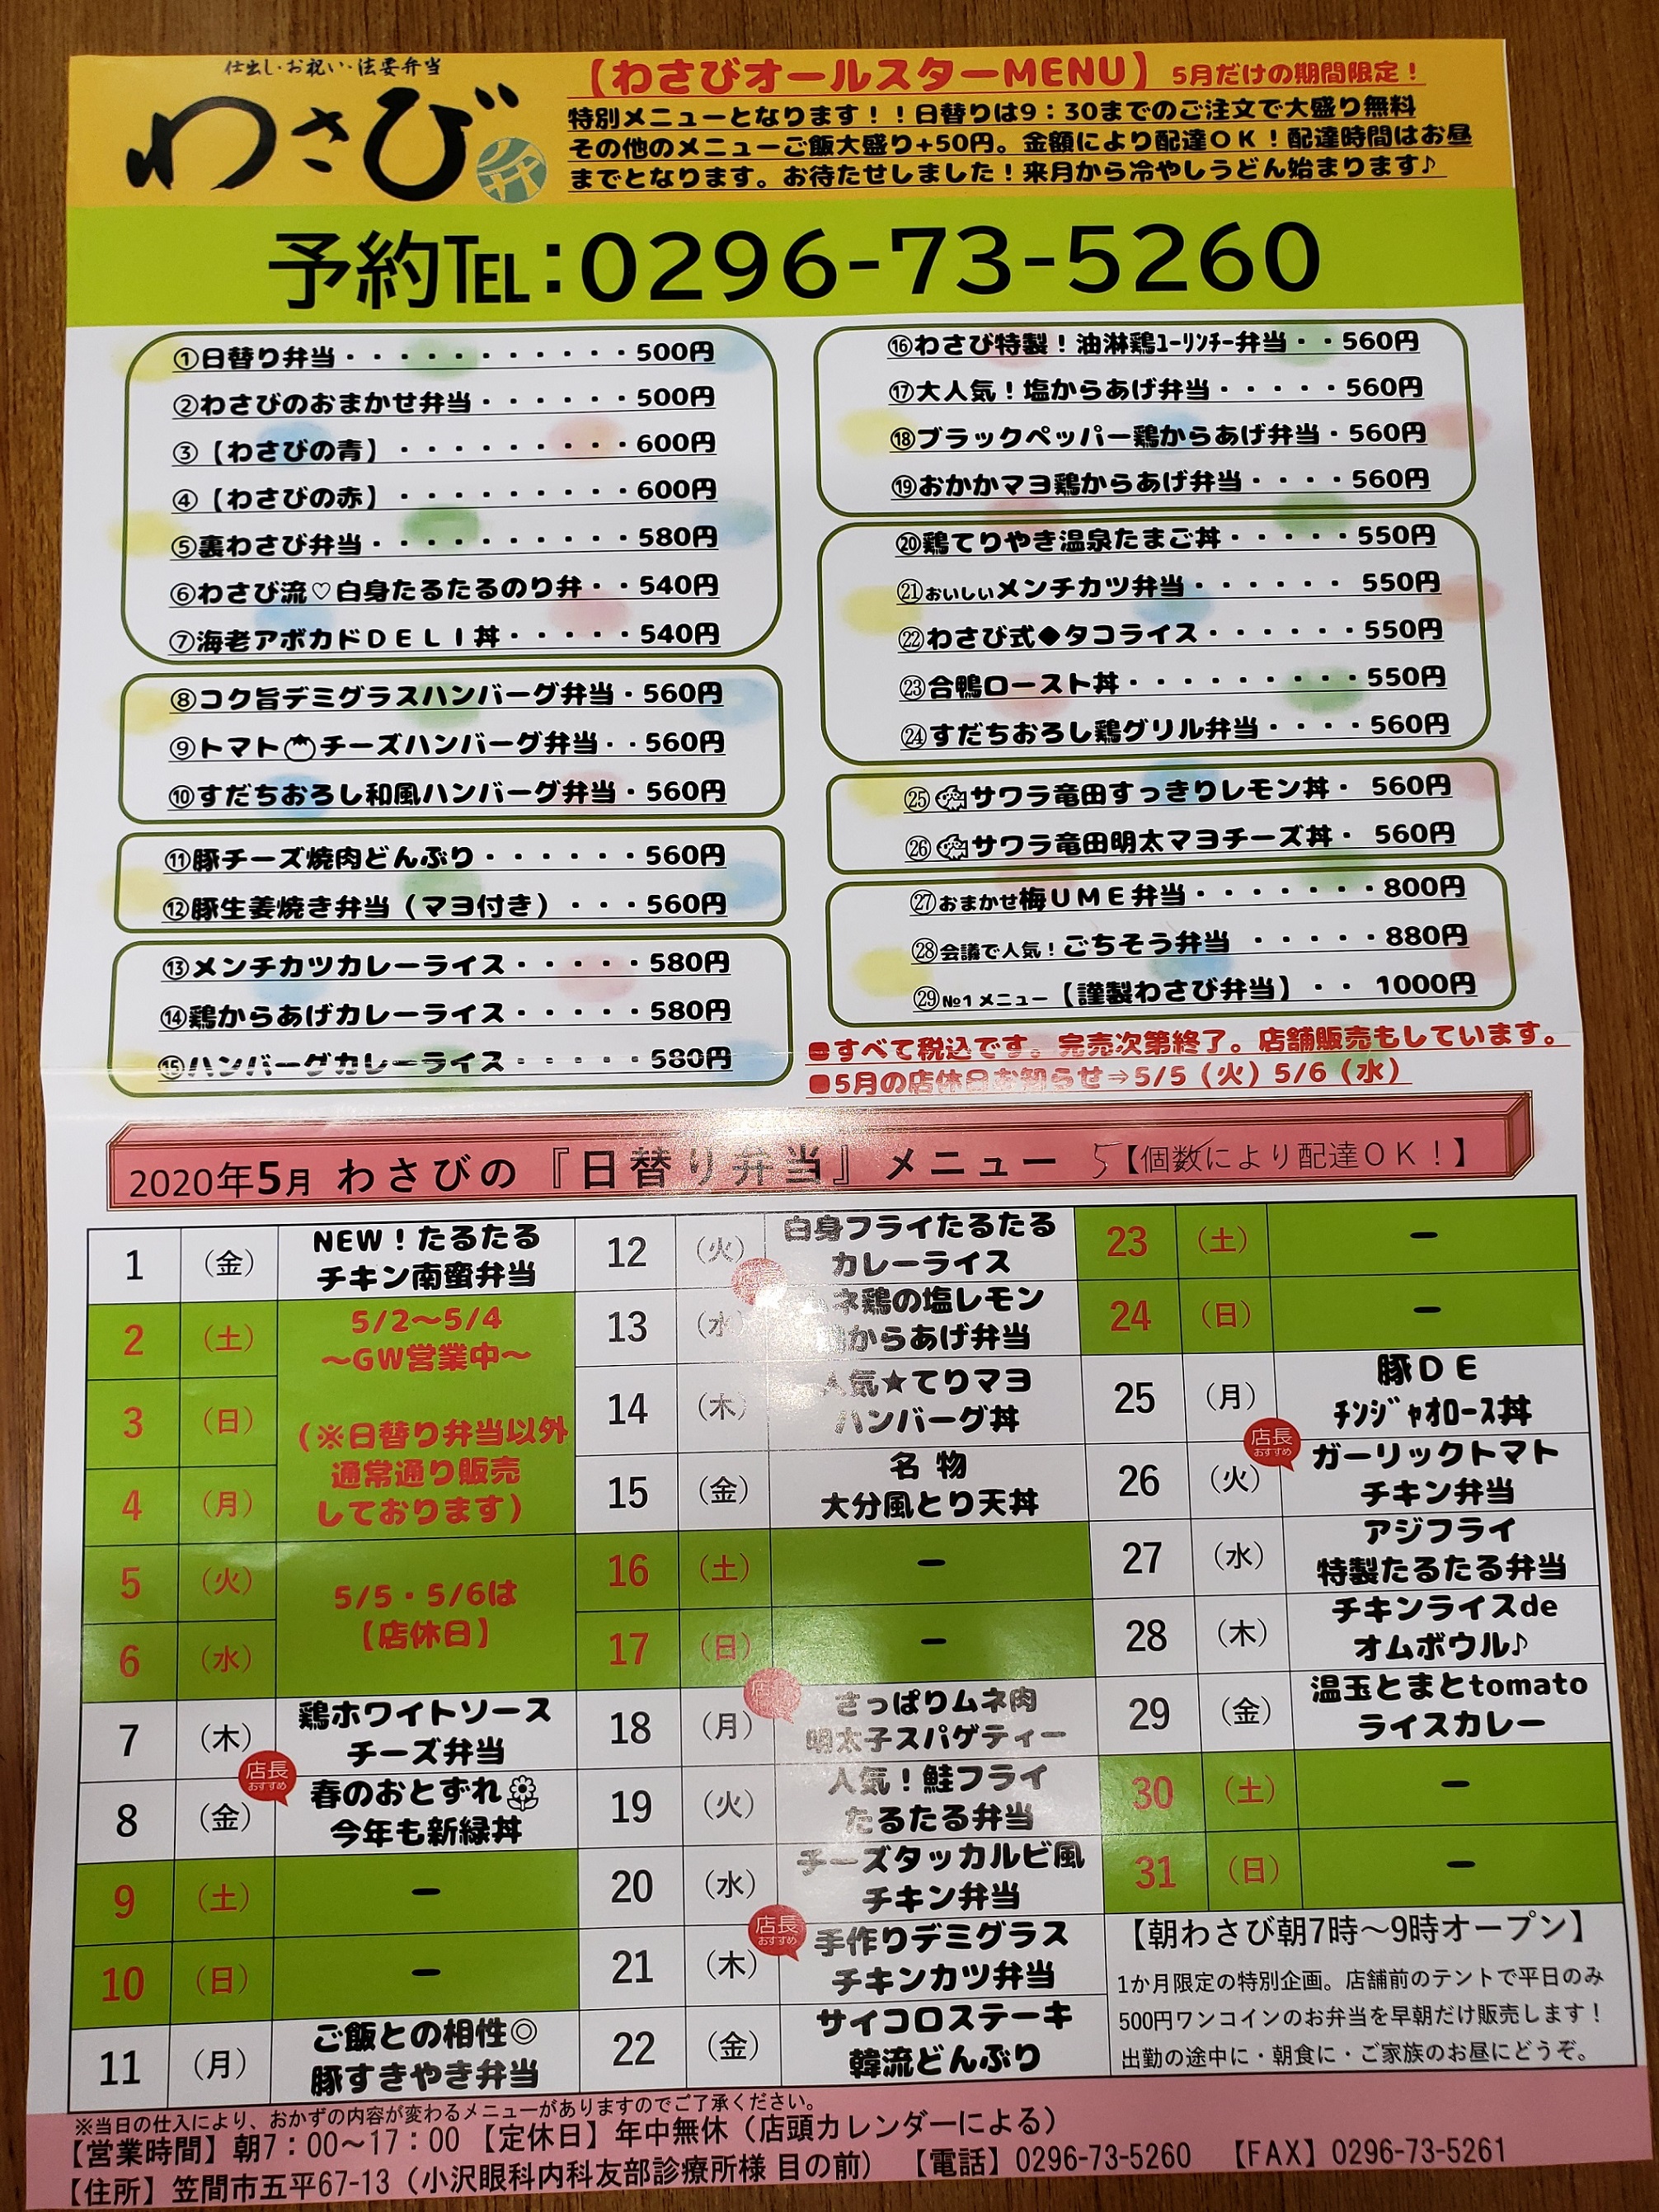 仕出し・お祝い・法要弁当
わさび
【わさびオールスターMENU】5月だけの期間限定！
特別メニューとなります！！日替りは9：30までのご注文で大盛り無料
その他のメニューご飯大盛り+50円。金額により配達ＯＫ！配達時間はお昼
までとなります。お待たせしました！来月から冷やしうどん始まります♪
予約TEL：0296-73-5260
①日替り弁当・・・・・・・・・・・・500円
②わさびのおまかせ弁当・・・・・・500円
③【わさびの青】・・・・・・・・・600円
④【わさびの赤】・・・・・・・・・600円
⑤裏わさび弁当・・・・・・・・・・580円
⑥わさび流♡白身たるたるのり弁・・540円
⑦海老アボカドＤＥＬＩ丼・・・・・540円
⑧コク旨デミグラスハンバーグ弁当・560円
⑨トマトチーズハンバーグ弁当・・560円
⑩すだちおろし和風ハンバーグ弁当・560円
⑪豚チーズ焼肉どんぶり・・・・・・560円
⑫豚生姜焼き弁当（マヨ付き）・・・560円
⑬メンチカツカレーライス・・・・・580円
⑭鶏からあげカレーライス・・・・・580円
⑮ハンバーグカレーライス・・・・・580円
⑯わさび特製！油淋鶏ﾕｰﾘﾝﾁｰ弁当・・560円
⑰大人気！塩からあげ弁当・・・・・560円
⑱ブラックペッパー鶏からあげ弁当・560円
⑲おかかマヨ鶏からあげ弁当・・・・560円
⑳鶏てりやき温泉たまご丼・・・・・550円
㉑おいしいメンチカツ弁当・・・・・・550円
㉒わさび式◆タコライス・・・・・・550円
㉓合鴨ロースト丼・・・・・・・・・550円
㉔すだちおろし鶏グリル弁当・・・・560円
㉕サワラ竜田すっきりレモン丼・560円
㉖サワラ竜田明太マヨチーズ丼・560円
㉗おまかせ梅ＵＭＥ弁当・・・・・・・800円
㉘会議で人気！ごちそう弁当・・・・・880円
㉙№1メニュー【謹製わさび弁当】・・1000円
■すべて税込です。完売次第終了。店舗販売もしています。
■5月の店休日お知らせ⇒5/5（火）5/6（水）
2020年5月 わさびの『日替り弁当』メニュー 【個数により配達ＯＫ！】
1 （金） NEW！たるたる
チキン南蛮弁当
2 （土） 5/2～5/4
～GW営業中～
3 （日） （※日替り弁当以外
通常通り販売
4 （月） しております）
5 （火） 5/5・5/6は
6 （水） 【店休日】
7 （木） 鶏ホワイトソース
チーズ弁当
店長
おすすめ
8 （金） 春のおとずれ
今年も新緑丼
9 （土） ー
10 （日） ー
11 （月） ご飯との相性◎
豚すきやき弁当
12 （火） 白身フライたるたる
カレーライス
13 （水） ネ鶏の塩レモン
からあげ弁当
14 （木） 人気★てりマヨ
ハンバーグ丼
15 （金） 名 物
大分風とり天丼
16 （土） ー
17 （日） ー
18 （月） さっぱりムネ肉
明太子スパゲティー
19 （火） 人気！鮭フライ
たるたる弁当
20 （水） チーズタッカルビ風
チキン弁当
店長
おすすめ
21 （木） 手作りデミグラス
チキンカツ弁当
22 （金） サイコロステーキ
韓流どんぶり
23 （土） ー
24 （日） ー
25 （月） 豚ＤＥ
ﾁﾝｼﾞｬｵﾛｰｽ丼
店長
おすすめ
26 （火） ガーリックトマト
チキン弁当
27 （水） アジフライ
特製たるたる弁当
28 （木） チキンライスde
オムボウル♪
29 （金） 温玉とまとtomato
ライスカレー
30 （土） ー
31 （日） ー
【朝わさび朝7時～9時オープン】
1か月限定の特別企画。店舗前のテントで平日のみ
500円ワンコインのお弁当を早朝だけ販売します！
出勤の途中に・朝食に・ご家族のお昼にどうぞ。
※当日の仕入により、おかずの内容が変わるメニューがありますのでご了承ください。
【営業時間】朝7：00～17：00 【定休日】年中無休（店頭カレンダーによる）
【住所】笠間市五平67-13（小沢眼科内科友部診療所様 目の前） 【電話】0296-73-5260 【FAX】0296-73-5261